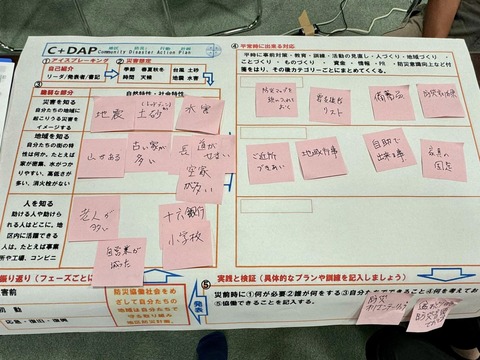 C+DAP
Community Disaster Action Plan
①アイスブレーキング
自己紹介
リーダ/発表者/書記
②災害想定
季節 春夏秋冬
時間 天候
台風 土砂
地震 水害
脆弱な部分
自然特性・社会特性
災害を知る
自分たちの地域に
起こりうる災害を
イメージする
地震
土砂
水害
地域を知る
自分たちの街の特
性は何か。たとえば
家が密集、水がつか
りやすい、高低さが
多い、消火栓がない
山がある
古い家が
多い
道がせまい
空家
が多い
人を知る
助ける人や助けら
れる人はどこに、地
区内に活躍できる
人は。たとえば事業
所や工場、コンビニ
老人が
多い
自営業が
減った
十六銀行
小学校
④平常時に出来る対応
平時に事前対策・教育・訓練・活動の見直し・人づくり・地域づくり・
ことづくり・ものづくり・資金・情報・PR・防災意識向上など付
箋をはり、その後カテゴリーごとにまとめてください。
リスト
備蓄品
ご近所
づきあい
地域行事
自助で
出来る事
家具の
固定
振り返り(フェーズごとに
災害前
初動
防災協働社会をめ
ざして自分たちの
地域は自分たちで
守る取り組み
地区防災計画。
⑤
実践と検証(具体的なプランや訓練を記入しましょう)
災前時に①何が必要②誰が何をする③自分たちでできること④何を考えてお
⑤協働できることを記入する。
防災